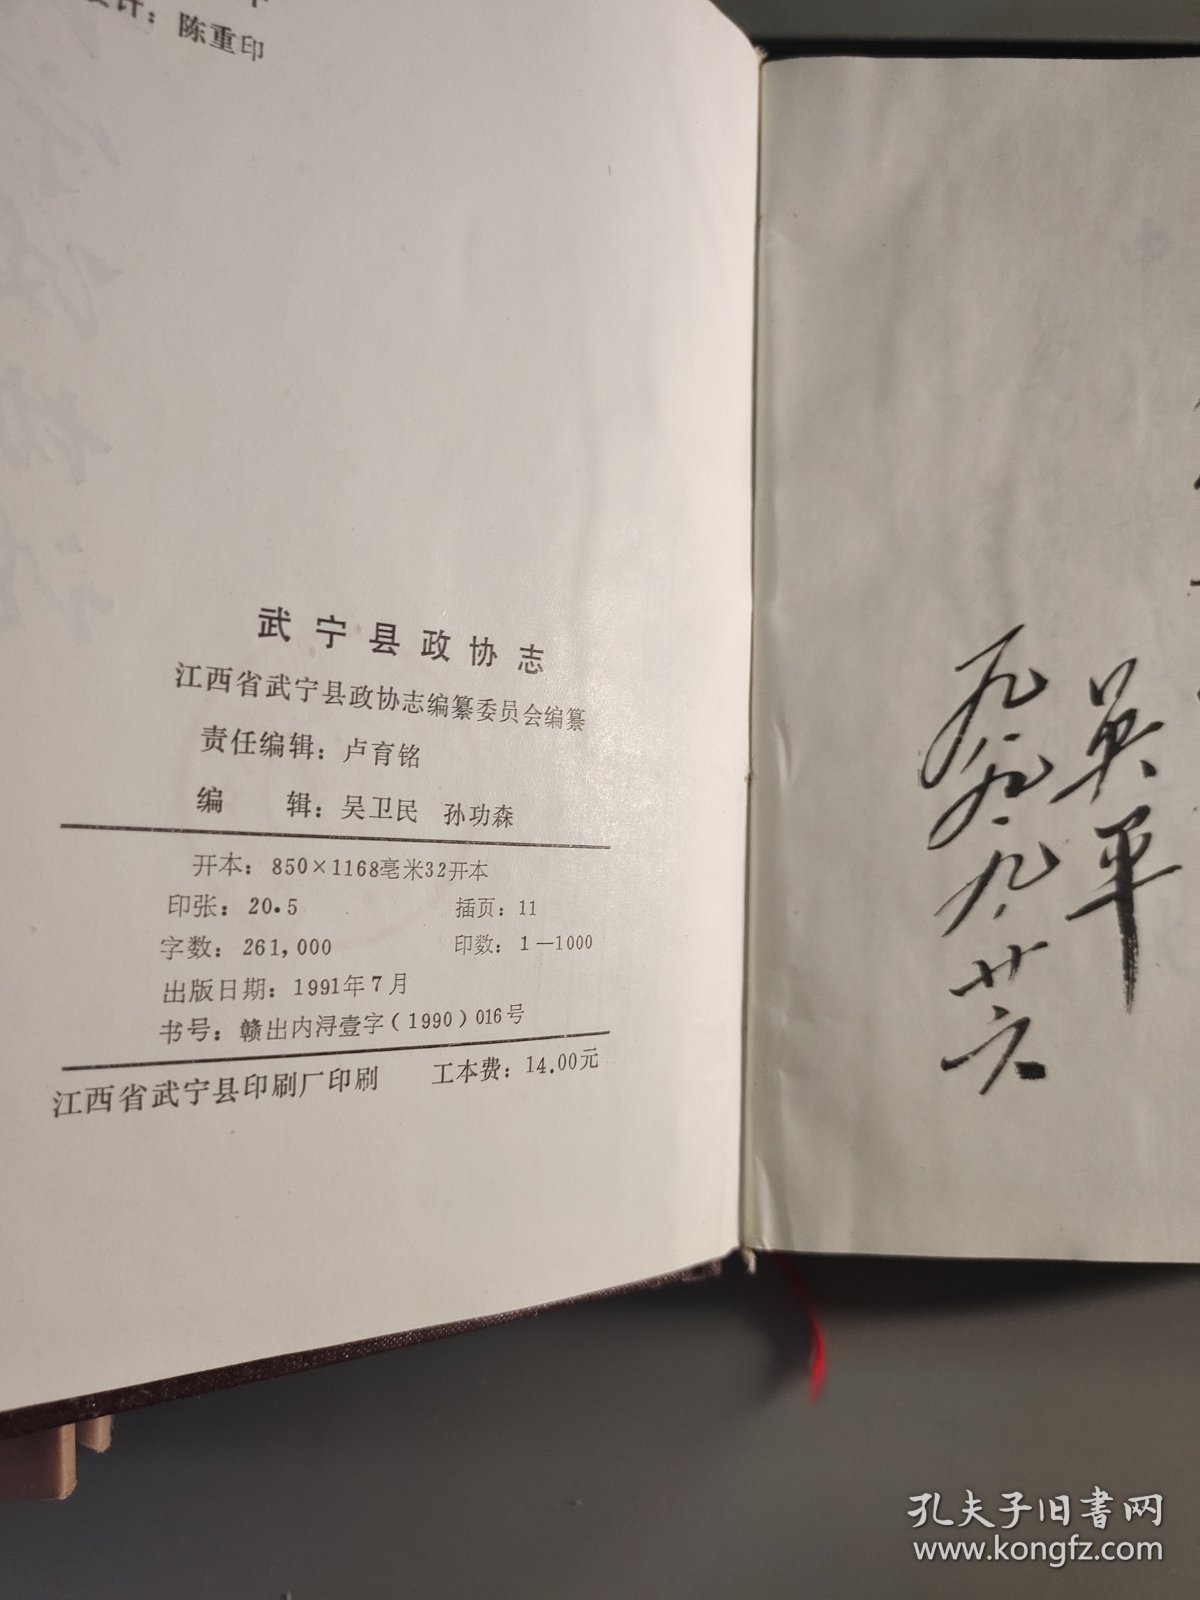 设计：陈重印
武宁县政协志
江西省武宁县政协志编纂委员会编纂
责任编辑：卢育铭
编　　辑：吴卫民 孙功森
开本：850×1168毫米32开本
印张：20.5　　插页：11
字数：261,000　　印数：1—1000
出版日期：1991年7月
书号：赣出内浔壹字(1990)016号
江西省武宁县印刷厂印刷　　工本费：14.00元
英平
九九.九.廿六
孔夫子旧书网
www.kongfz.com